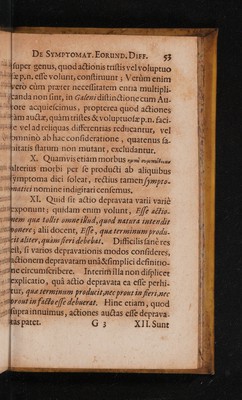 DE SYMPTOMAT. EORUND. DIFF. 53
super genus, quod actionis tristis vel voluptuo
sæ p.n. esse volunt, constituunt; Verùm enim
vero cùm præter necessitatem entia multipli-
canda non sint, in Galeni distinctione cum Au-
tore acquiescimus, propterea quod actiones
tàm auctæ, quàm tristes & voluptuosæ p.n. faci-
lè vel ad reliquas differentias reducantur, vel
omninò ab hac consideratione, quatenus sa-
nitatis statum non mutant, excludantur.
X. Quamvis etiam morbus
alterius morbi per se producti ab aliquibus
symptoma dici soleat, rectius tamen sympto-
matici nomine indigitari censemus.
XI. Quid sit actio depravata varii variè
exponunt; quidam enim volunt, Esse actio-
nem quæ tolit omne illud, quod natura intendit
ponere; alii docent, Esse, quæ terminum produ-
cit aliter, quàm fieri debebat. Difficilis sanè res
est, si varios depravationis modos consideres,
actionem depravatam unâ & simplici definitio-
ne circumscribere. Interim illa non displicet
explicatio, quâ actio depravata ea esse perhi-
tur, quæ terminum producit, nec prout in fieri, nec
prout in facto esse debuerat. Hinc etiam, quod
supra innuimus, actiones auctas esse deprava-
tas patet. G 3 XII. Sunt